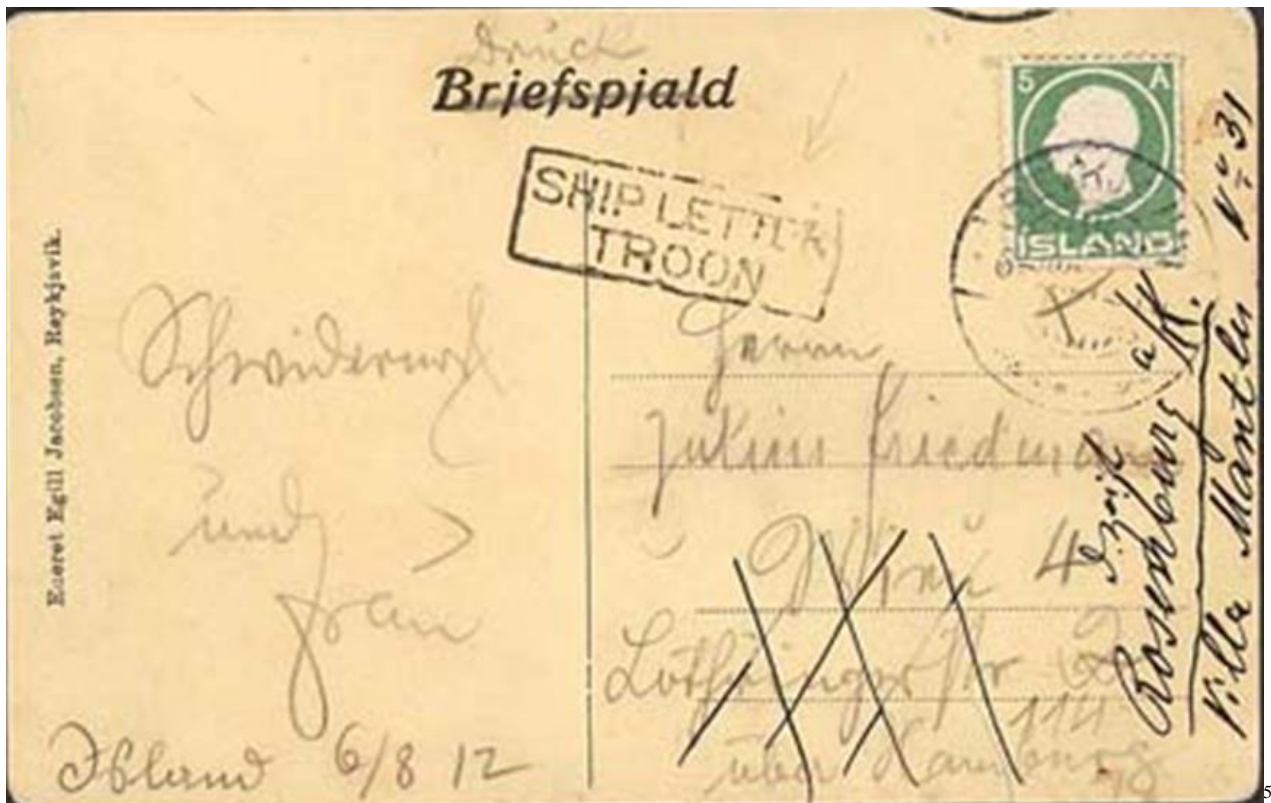 Druck
Briefspjald
5 A
ÍSLAND
SHIP LETTER
TROON
Eneret Egill Jacobsen, Reykjavik.
und
Frau
Island 6/8 12
Herrn
Julius Friedmann
Wien 4
Lothringer Str 2
114
über Hamburg
dzeit
Rosenburg a/K.
Villa Mantler No 31
5